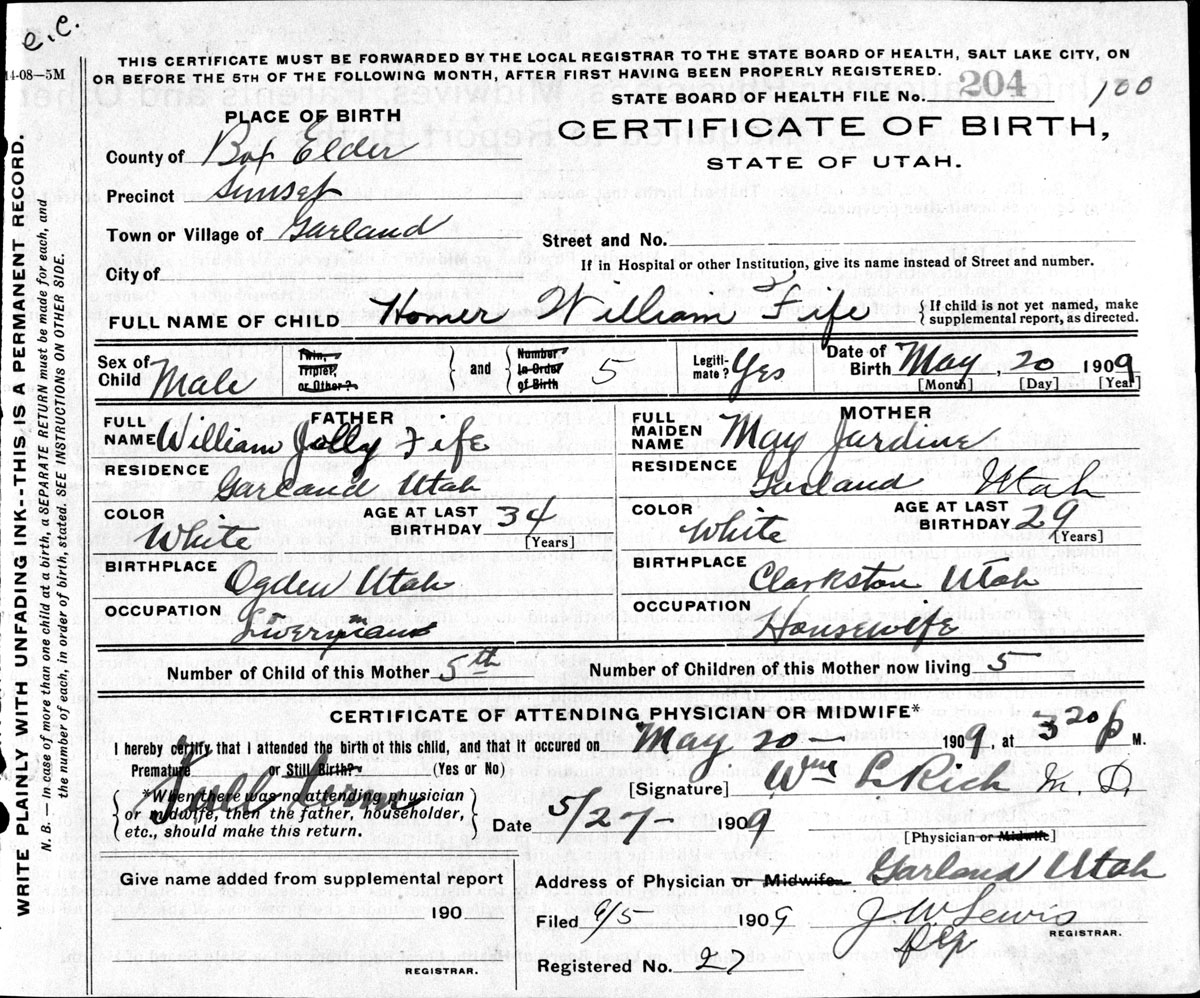 e.c.
14-08—5M
THIS CERTIFICATE MUST BE FORWARDED BY THE LOCAL REGISTRAR TO THE STATE BOARD OF HEALTH, SALT LAKE CITY, ON
OR BEFORE THE 5TH OF THE FOLLOWING MONTH, AFTER FIRST HAVING BEEN PROPERLY REGISTERED.
STATE BOARD OF HEALTH FILE No. 204 100
WRITE PLAINLY WITH UNFADING INK--THIS IS A PERMANENT RECORD.
N. B. — In case of more than one child at a birth, a SEPARATE RETURN must be made for each, and
the number of each, in order of birth, stated. SEE INSTRUCTIONS ON OTHER SIDE.
PLACE OF BIRTH
CERTIFICATE OF BIRTH,
STATE OF UTAH.
County of Box Elder
Precinct Sunset
Town or Village of Garland
Street and No.
City of
If in Hospital or other Institution, give its name instead of Street and number.
FULL NAME OF CHILD Homer William Fife
{If child is not yet named, make
supplemental report, as directed.
Sex of Child Male
Twin, Triplet, or Other?
and
Number in Order of Birth 5
Legiti-mate? Yes
Date of Birth May, 20 1909
[Month] [Day] [Year]
FATHER
FULL NAME William Jolly Fife
RESIDENCE Garland Utah
COLOR White
AGE AT LAST BIRTHDAY 34
[Years]
BIRTHPLACE Ogden Utah
OCCUPATION Liveryman
MOTHER
FULL MAIDEN NAME May Jardine
RESIDENCE Garland Utah
COLOR White
AGE AT LAST BIRTHDAY 29
[Years]
BIRTHPLACE Clarkston Utah
OCCUPATION Housewife
Number of Child of this Mother 5th
Number of Children of this Mother now living 5
CERTIFICATE OF ATTENDING PHYSICIAN OR MIDWIFE*
I hereby certify that I attended the birth of this child, and that it occured on May 20 — 1909, at 3 20 p M.
Premature or Still Birth? (Yes or No)
[Signature] Wm L Rich M. D.
{*When there was no attending physician
or midwife, then the father, householder,
etc., should make this return.}
Date 5/27- 1909
[Physician or Midwife]
Give name added from supplemental report
190
REGISTRAR.
Address of Physician or Midwife Garland Utah
Filed 6/5 1909 J. W. Lewis
REGISTRAR.
Registered No. 27